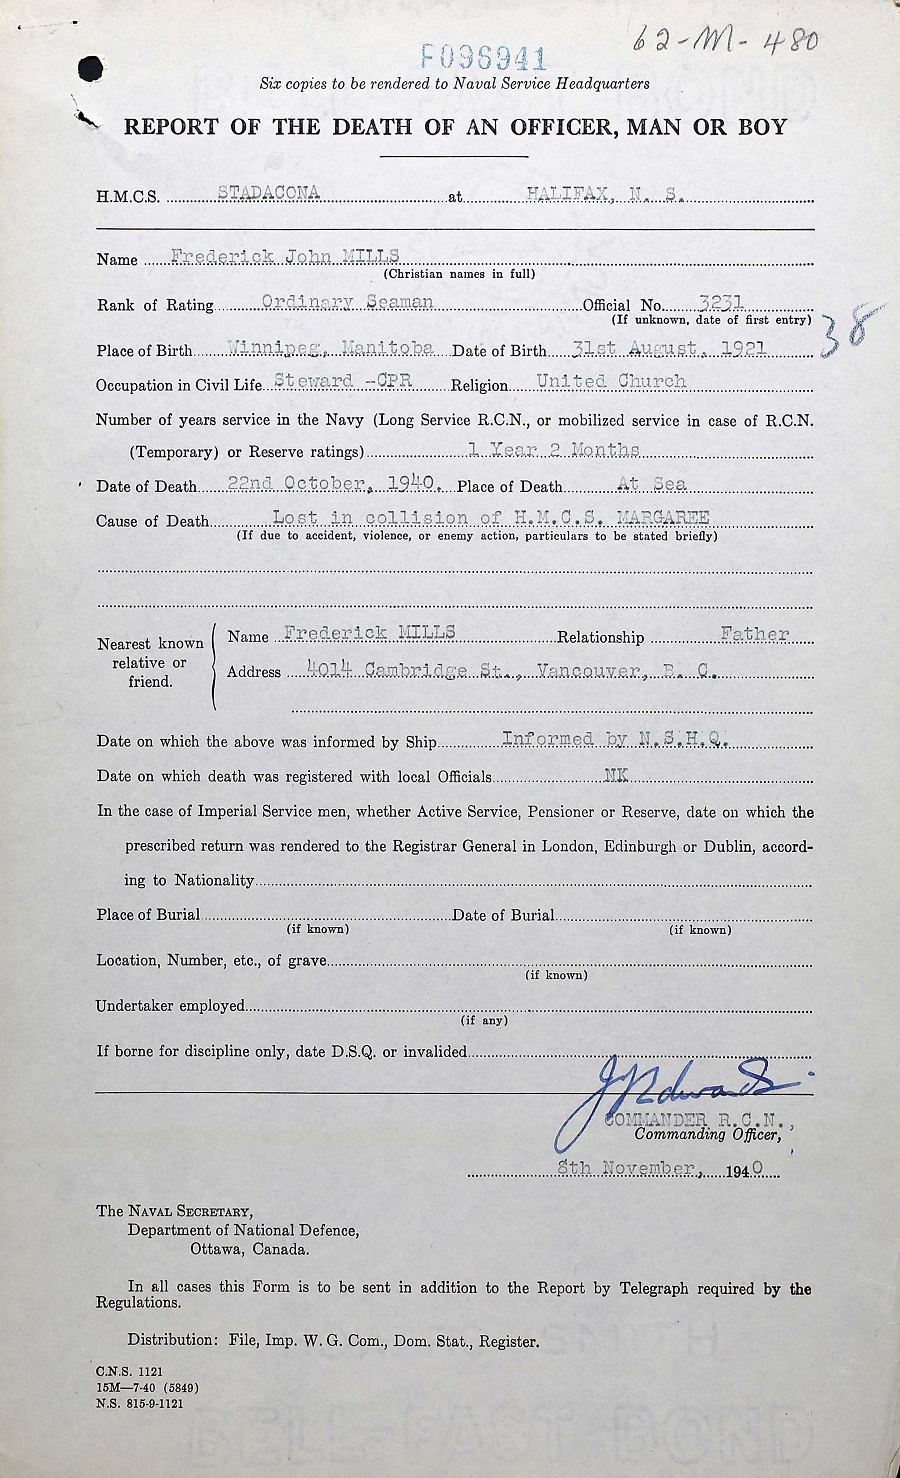 62-M-480
F096941
Six copies to be rendered to Naval Service Headquarters
REPORT OF THE DEATH OF AN OFFICER, MAN OR BOY
H.M.C.S. STADACONA at HALIFAX, N. S.
Name Frederick John MILLS
(Christian names in full)
Rank of Rating Ordinary Seaman Official No. 3231
(If unknown, date of first entry)
38
Place of Birth Winnipeg, Manitoba Date of Birth 31st August, 1921
Occupation in Civil Life Steward -CPR Religion United Church
Number of years service in the Navy (Long Service R.C.N., or mobilized service in case of R.C.N.
(Temporary) or Reserve ratings) 1 Year 2 Months
Date of Death 22nd October, 1940. Place of Death At Sea
Cause of Death Lost in collision of H.M.C.S. MARGAREE
(If due to accident, violence, or enemy action, particulars to be stated briefly)
Nearest known relative or friend.
Name Frederick MILLS Relationship Father
Address 4014 Cambridge St., Vancouver, B. C.
Date on which the above was informed by Ship Informed by N.S.H.Q.
Date on which death was registered with local Officials NK
In the case of Imperial Service men, whether Active Service, Pensioner or Reserve, date on which the
prescribed return was rendered to the Registrar General in London, Edinburgh or Dublin, accord-
ing to Nationality
Place of Burial Date of Burial
(if known) (if known)
Location, Number, etc., of grave
(if known)
Undertaker employed
(if any)
If borne for discipline only, date D.S.Q. or invalided
COMMANDER R.C.N.,
Commanding Officer,
8th November, 1940
The NAVAL SECRETARY,
Department of National Defence,
Ottawa, Canada.
In all cases this Form is to be sent in addition to the Report by Telegraph required by the
Regulations.
Distribution: File, Imp. W. G. Com., Dom. Stat., Register.
C.N.S. 1121
15M—7-40 (5849)
N.S. 815-9-1121